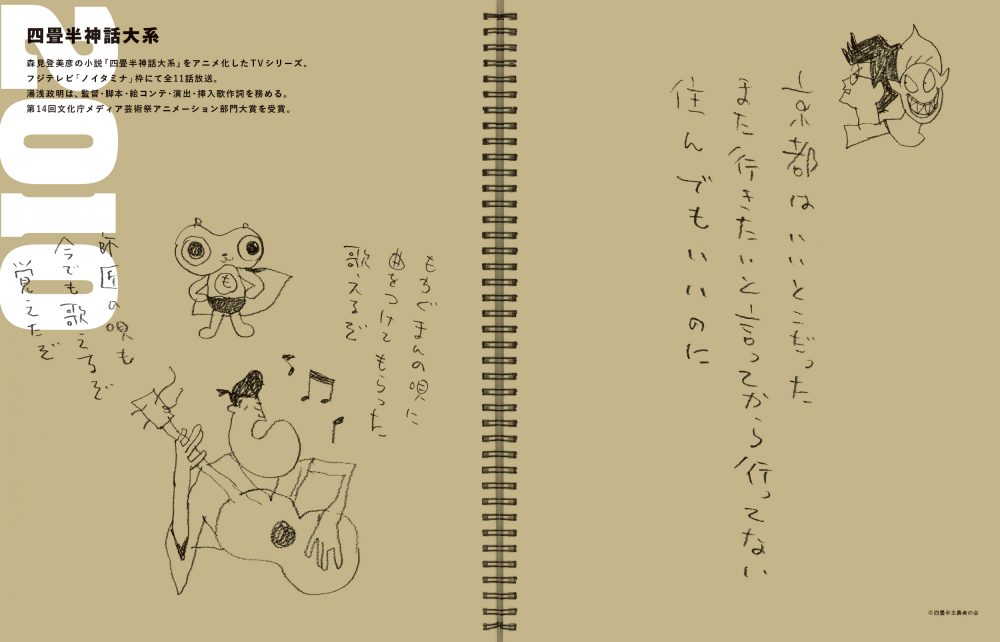 2010
四畳半神話大系
森見登美彦の小説『四畳半神話大系』をアニメ化したTVシリーズ。
フジテレビ「ノイタミナ」枠にて全11話放送。
湯浅政明は、監督・脚本・絵コンテ・演出・挿入歌作詞を務める。
第14回文化庁メディア芸術祭アニメーション部門大賞を受賞。
も
もちぐまんの唄に
曲をつけてもらった
歌えるぞ
師匠の唄も
今でも歌えるぞ
覚えたぞ
京都はいいとこだった
また行きたいと言ってから行ってない
住んでもいいのに
©四畳半主義者の会